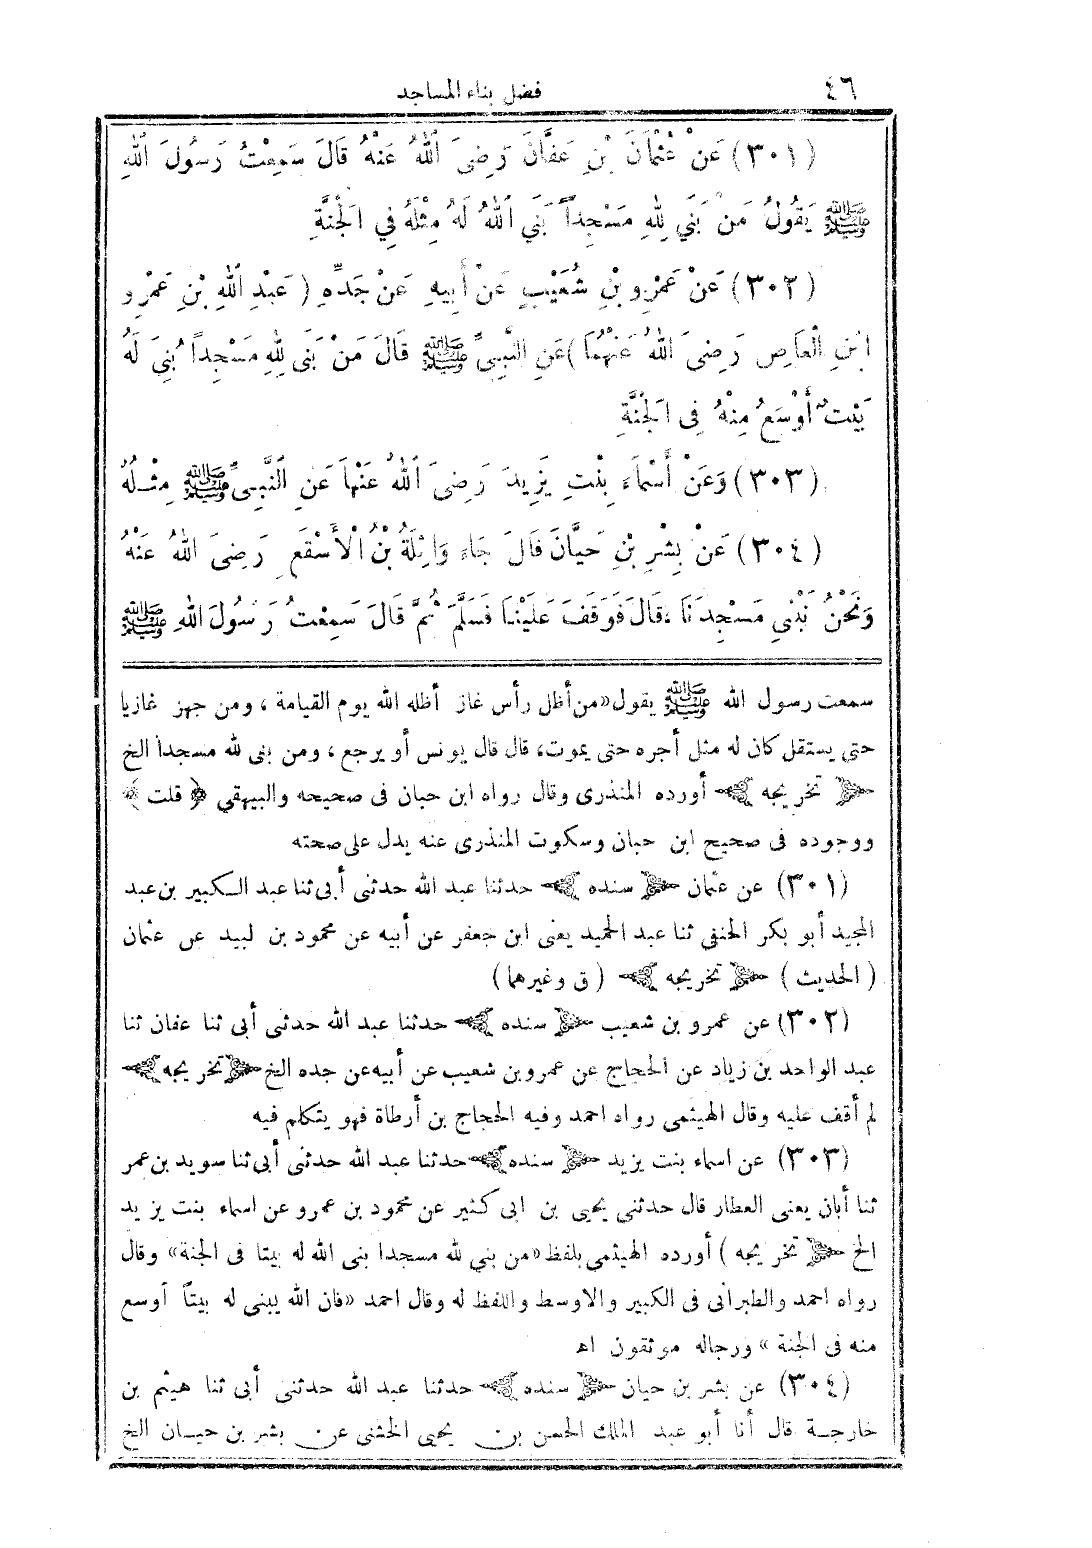 ٤٦
فضل بناء المساجد
(٣٠١) عَنْ عُثْمَانَ بْنِ عَفَّانَ رَضِيَ اللهُ عَنْهُ قَالَ سَمِعْتُ رَسُولَ اللهِ
ﷺ يَقُولُ مَنْ بَنَى لِلهِ مَسْجِداً بَنَى اللهُ لَهُ مِثْلَهُ فِي الْجَنَّةِ
(٣٠٢) عَنْ عَمْرِو بْنِ شُعَيْبٍ عَنْ أَبِيهِ عَنْ جَدِّهِ (عَبْدِ اللهِ بْنِ عَمْرِو
ابْنِ الْعَاصِ رَضِيَ اللهُ عَنْهُمَا) عَنِ النَّبِيِّ ﷺ قَالَ مَنْ بَنَى لِلهِ مَسْجِداً بُنِيَ لَهُ
بَيْتٌ أَوْسَعُ مِنْهُ فِى الْجَنَّةِ
(٣٠٣) وَعَنْ أَسْمَاءَ بِنْتِ يَزِيدَ رَضِيَ اللهُ عَنْهَا عَنِ النَّبِيِّ ﷺ مِثْلَهُ
(٣٠٤) عَنْ بِشْرِ بْنِ حَيَّانَ قَالَ جَاءَ وَاثِلَةُ بْنُ الْأَسْقَعِ رَضِيَ اللهُ عَنْهُ
وَنَحْنُ نَبْنِي مَسْجِدَنَا، قَالَ فَوَقَفَ عَلَيْنَا فَسَلَّمَ ثُمَّ قَالَ سَمِعْتُ رَسُولَ اللهِ ﷺ
سمعت رسول الله ﷺ يقول «من أظل رأس غاز أظله الله يوم القيامة ، ومن جهز غازيا
حتى يستقل كان له مثل أجره حتى يموت، قال قال يونس أو يرجع ، ومن بنى لله مسجدا الخ
﴿ تخريجه ﴾ أورده المنذرى وقال رواه ابن حبان فى صحيحه والبيهقي ﴿ قلت ﴾
ووجوده فى صحيح ابن حبان وسكوت المنذرى عنه يدل على صحته
(٣٠١) عن عثمان ﴿ سنده ﴾ حدثنا عبد الله حدثنى أبى ثنا عبد الكبير بن عبد
المجيد أبو بكر الحنفى ثنا عبد الحميد يعنى ابن جعفر عن أبيه عن محمود بن لبيد عن عثمان
(الحديث) ﴿ تخريجه ﴾ (ق وغيرهما)
(٣٠٢) عن عمرو بن شعيب ﴿ سنده ﴾ حدثنا عبد الله حدثنى أبى ثنا عفان ثنا
عبد الواحد بن زياد عن الحجاج عن عمرو بن شعيب عن أبيه عن جده الخ ﴿ تخريجه ﴾
لم أقف عليه وقال الهيثمى رواه احمد وفيه الحجاج بن أرطاة فهو يتكلم فيه
(٣٠٣) عن اسماء بنت يزيد ﴿ سنده ﴾ حدثنا عبد الله حدثنى أبى ثنا سويد بن عمر
ثنا أبان يعنى العطار قال حدثنى يحيى بن ابى كثير عن محمود بن عمرو عن اسماء بنت يزيد
الخ ﴿ تخريجه ) أورده الهيثمى بلفظ «من بنى لله مسجدا بنى الله له بيتا فى الجنة» وقال
رواه احمد والطبرانى فى الكبير والاوسط واللفظ له وقال احمد «فان الله يبنى له بيتاً أوسع
منه فى الجنة» ورجاله موثقون اهـ
(٣٠٤) عن بشر بن حيان ﴿ سنده ﴾ حدثنا عبد الله حدثنى أبى ثنا هيثم بن
خارجة قال أنا أبو عبد الملك الحسن بن يحيى الخشنى عن بشر بن حيان الخ